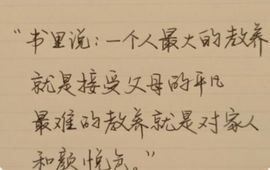 “书里说：一个人最大的教养
就是接受父母的平凡
最难的教养就是对家人
和颜悦色。”